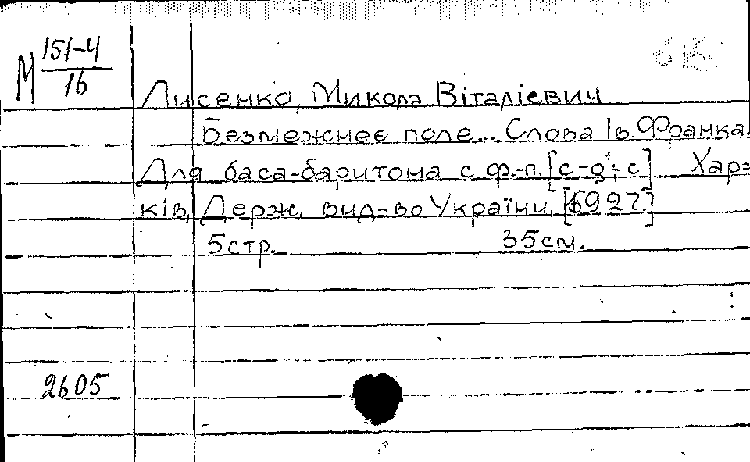 М 151-4
16
Лисенко, Микола Віталієвич
Безмежнеє поле... Слова Ів. Франка.
Для баса-баритона с ф.-п. [c-g; c] Хар-
ків, Держ. вид-во України, [1927]
5 стр. 35 см.
2605